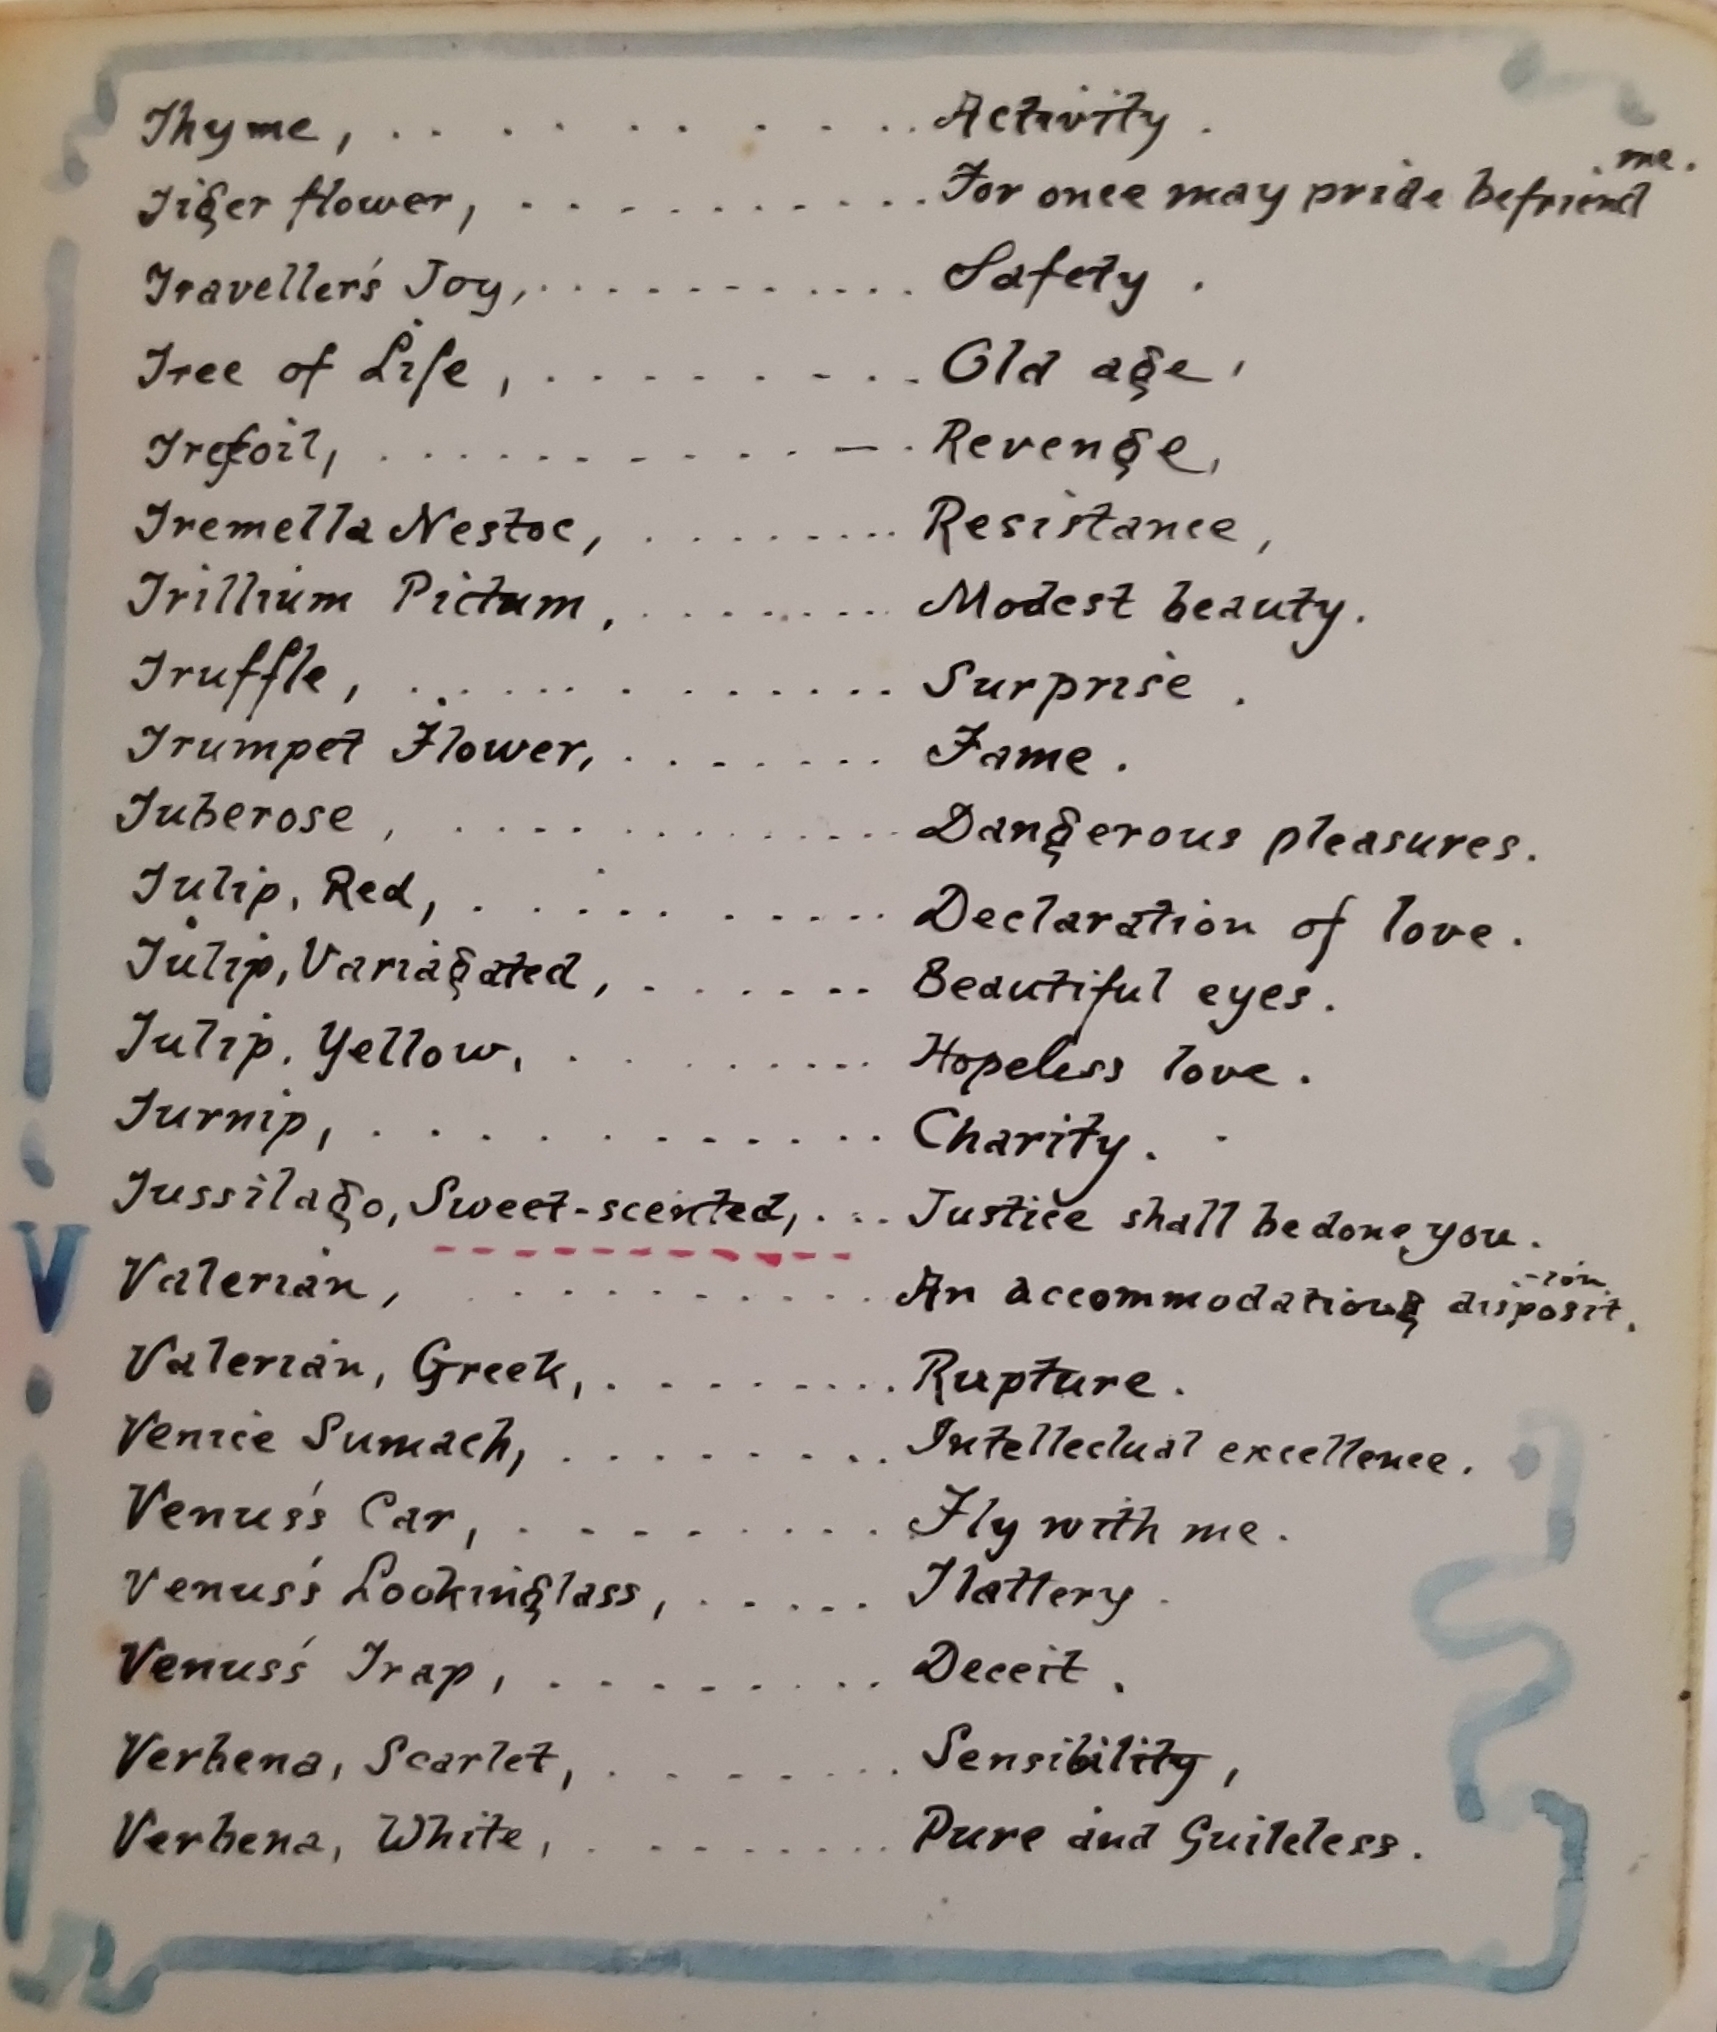 Thyme, . . . . . . . . . Activity.
Tiger flower, . . . . . . . . . . . For once may pride befriend me.
Traveller's Joy, . . . . . . . . . . . Safety.
Tree of Life, . . . . . . . . . Old age,
Trefoil, . . . . . . . . . . . — . Revenge,
Tremella Nestoc, . . . . . . . . . Resistance,
Trillium Pictum, . . . . . . . . Modest beauty.
Truffle, . . . . . . . . . . . . . Surprise.
Trumpet Flower, . . . . . . . Fame.
Tuberose, . . . . . . . . . . . . . Dangerous pleasures.
Tulip, Red, . . . . . . . . . . . Declaration of love.
Tulip, Variagated, . . . . . . . Beautiful eyes.
Tulip, Yellow, . . . . . . . . Hopeless love.
Turnip, . . . . . . . . . . . . Charity.
Tussilago, Sweet-scented, . . . Justice shall be done you.
V
Valerian, . . . . . . . . . . . An accommodationg disposit-ion.
Valerian, Greek, . . . . . . . . . Rupture.
Venice Sumach, . . . . . . . . . Intellectual excellence.
Venus's Car, . . . . . . . . . Fly with me.
Venus's Lookinglass, . . . . . . Flattery.
Venus's Trap, . . . . . . . . . Deceit.
Verbena, Scarlet, . . . . . . . . Sensibility,
Verbena, White, . . . . . . . . . Pure and Guileless.